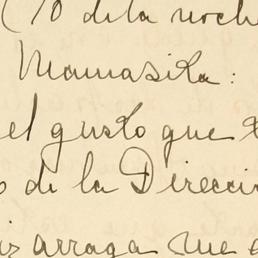 (10 de la noche
Mamasita:
el gusto que
de la Direcci
arraga que